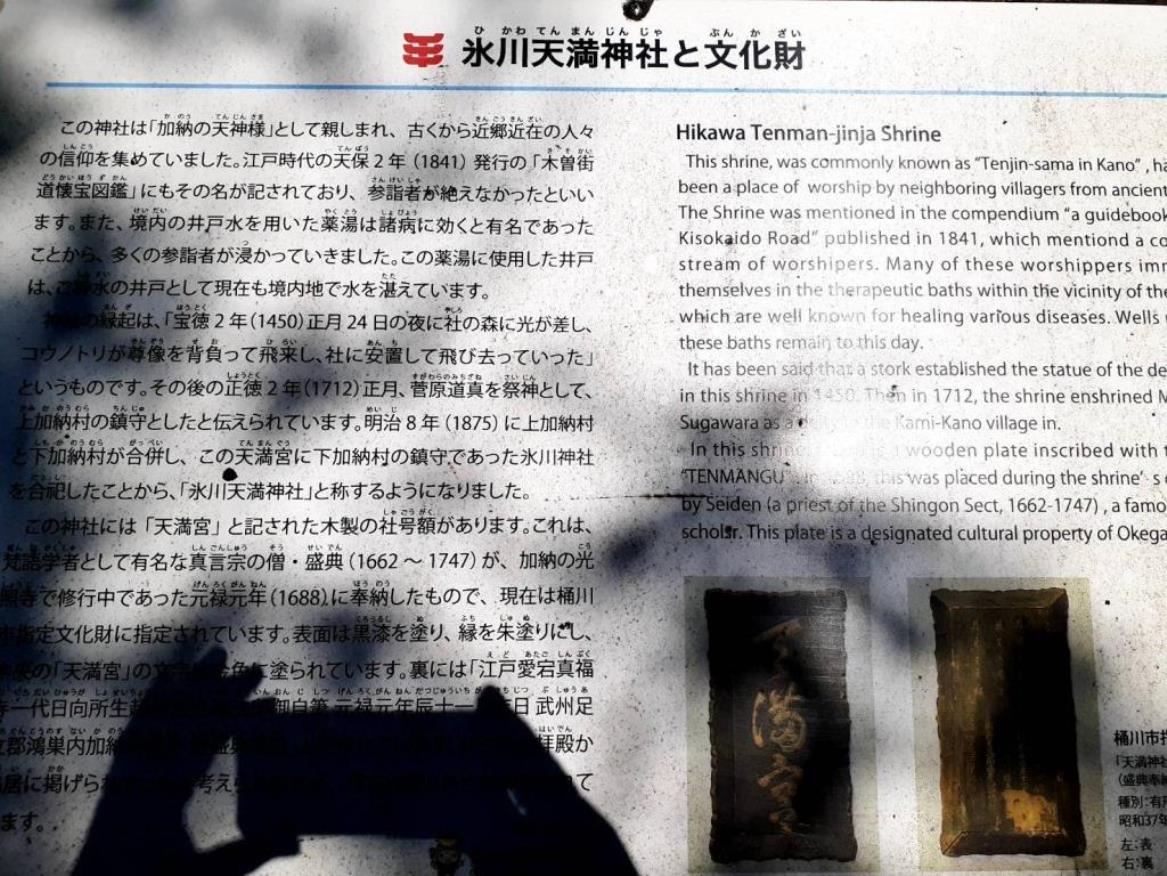 氷川天満神社と文化財
この神社は「加納の天神様」として親しまれ、古くから近郷近在の人々
の信仰を集めていました。江戸時代の天保2年（1841）発行の「木曽街
道懐宝図鑑」にもその名が記されており、参詣者が絶えなかったといい
ます。また、境内の井戸水を用いた薬湯は諸病に効くと有名であった
ことから、多くの参詣者が浸かっていきました。この薬湯に使用した井戸
は、ご神水の井戸として現在も境内地で水を湛えています。
神社の縁起は、「宝徳2年（1450）正月24日の夜に社の森に光が差し、
コウノトリが尊像を背負って飛来し、社に安置して飛び去っていった」
というものです。その後の正徳2年（1712）正月、菅原道真を祭神として、
上加納村の鎮守としたと伝えられています。明治8年（1875）に上加納村
と下加納村が合併し、この天満宮に下加納村の鎮守であった氷川神社
を合祀したことから、「氷川天満神社」と称するようになりました。
この神社には「天満宮」と記された木製の社号額があります。これは、
梵語学者として有名な真言宗の僧・盛典（1662～1747）が、加納の光
照寺で修行中であった元禄元年（1688）に奉納したもので、現在は桶川
市指定文化財に指定されています。表面は黒漆を塗り、縁を朱塗りにし、
「天満宮」の文字は金色に塗られています。裏には「江戸愛宕真福
寺一代日向所生 御自筆 元禄元年辰十一 日 武州足
立郡鴻巣内加納 拝殿か
居に掲げられ 考えら て
ます。
Hikawa Tenman-jinja Shrine
This shrine, was commonly known as “Tenjin-sama in Kano”, ha
been a place of worship by neighboring villagers from ancient
The Shrine was mentioned in the compendium “a guidebook
Kisokaido Road” published in 1841, which mentiond a co
stream of worshipers. Many of these worshippers imm
themselves in the therapeutic baths within the vicinity of the
which are well known for healing various diseases. Wells
these baths remain to this day.
It has been said that a stork established the statue of the de
in this shrine in 1450. Then in 1712, the shrine enshrined M
Sugawara as a deity to the Kami-Kano village in.
In this shrine, is a wooden plate inscribed with t
“TENMANGU”. In 1688, this was placed during the shrine’s
by Seiden (a priest of the Shingon Sect, 1662-1747) , a famo
scholr. This plate is a designated cultural property of Okega
天満宮
桶川市指
「天満神社
（盛典奉納
種別：有形
昭和37年
左：表
右：裏